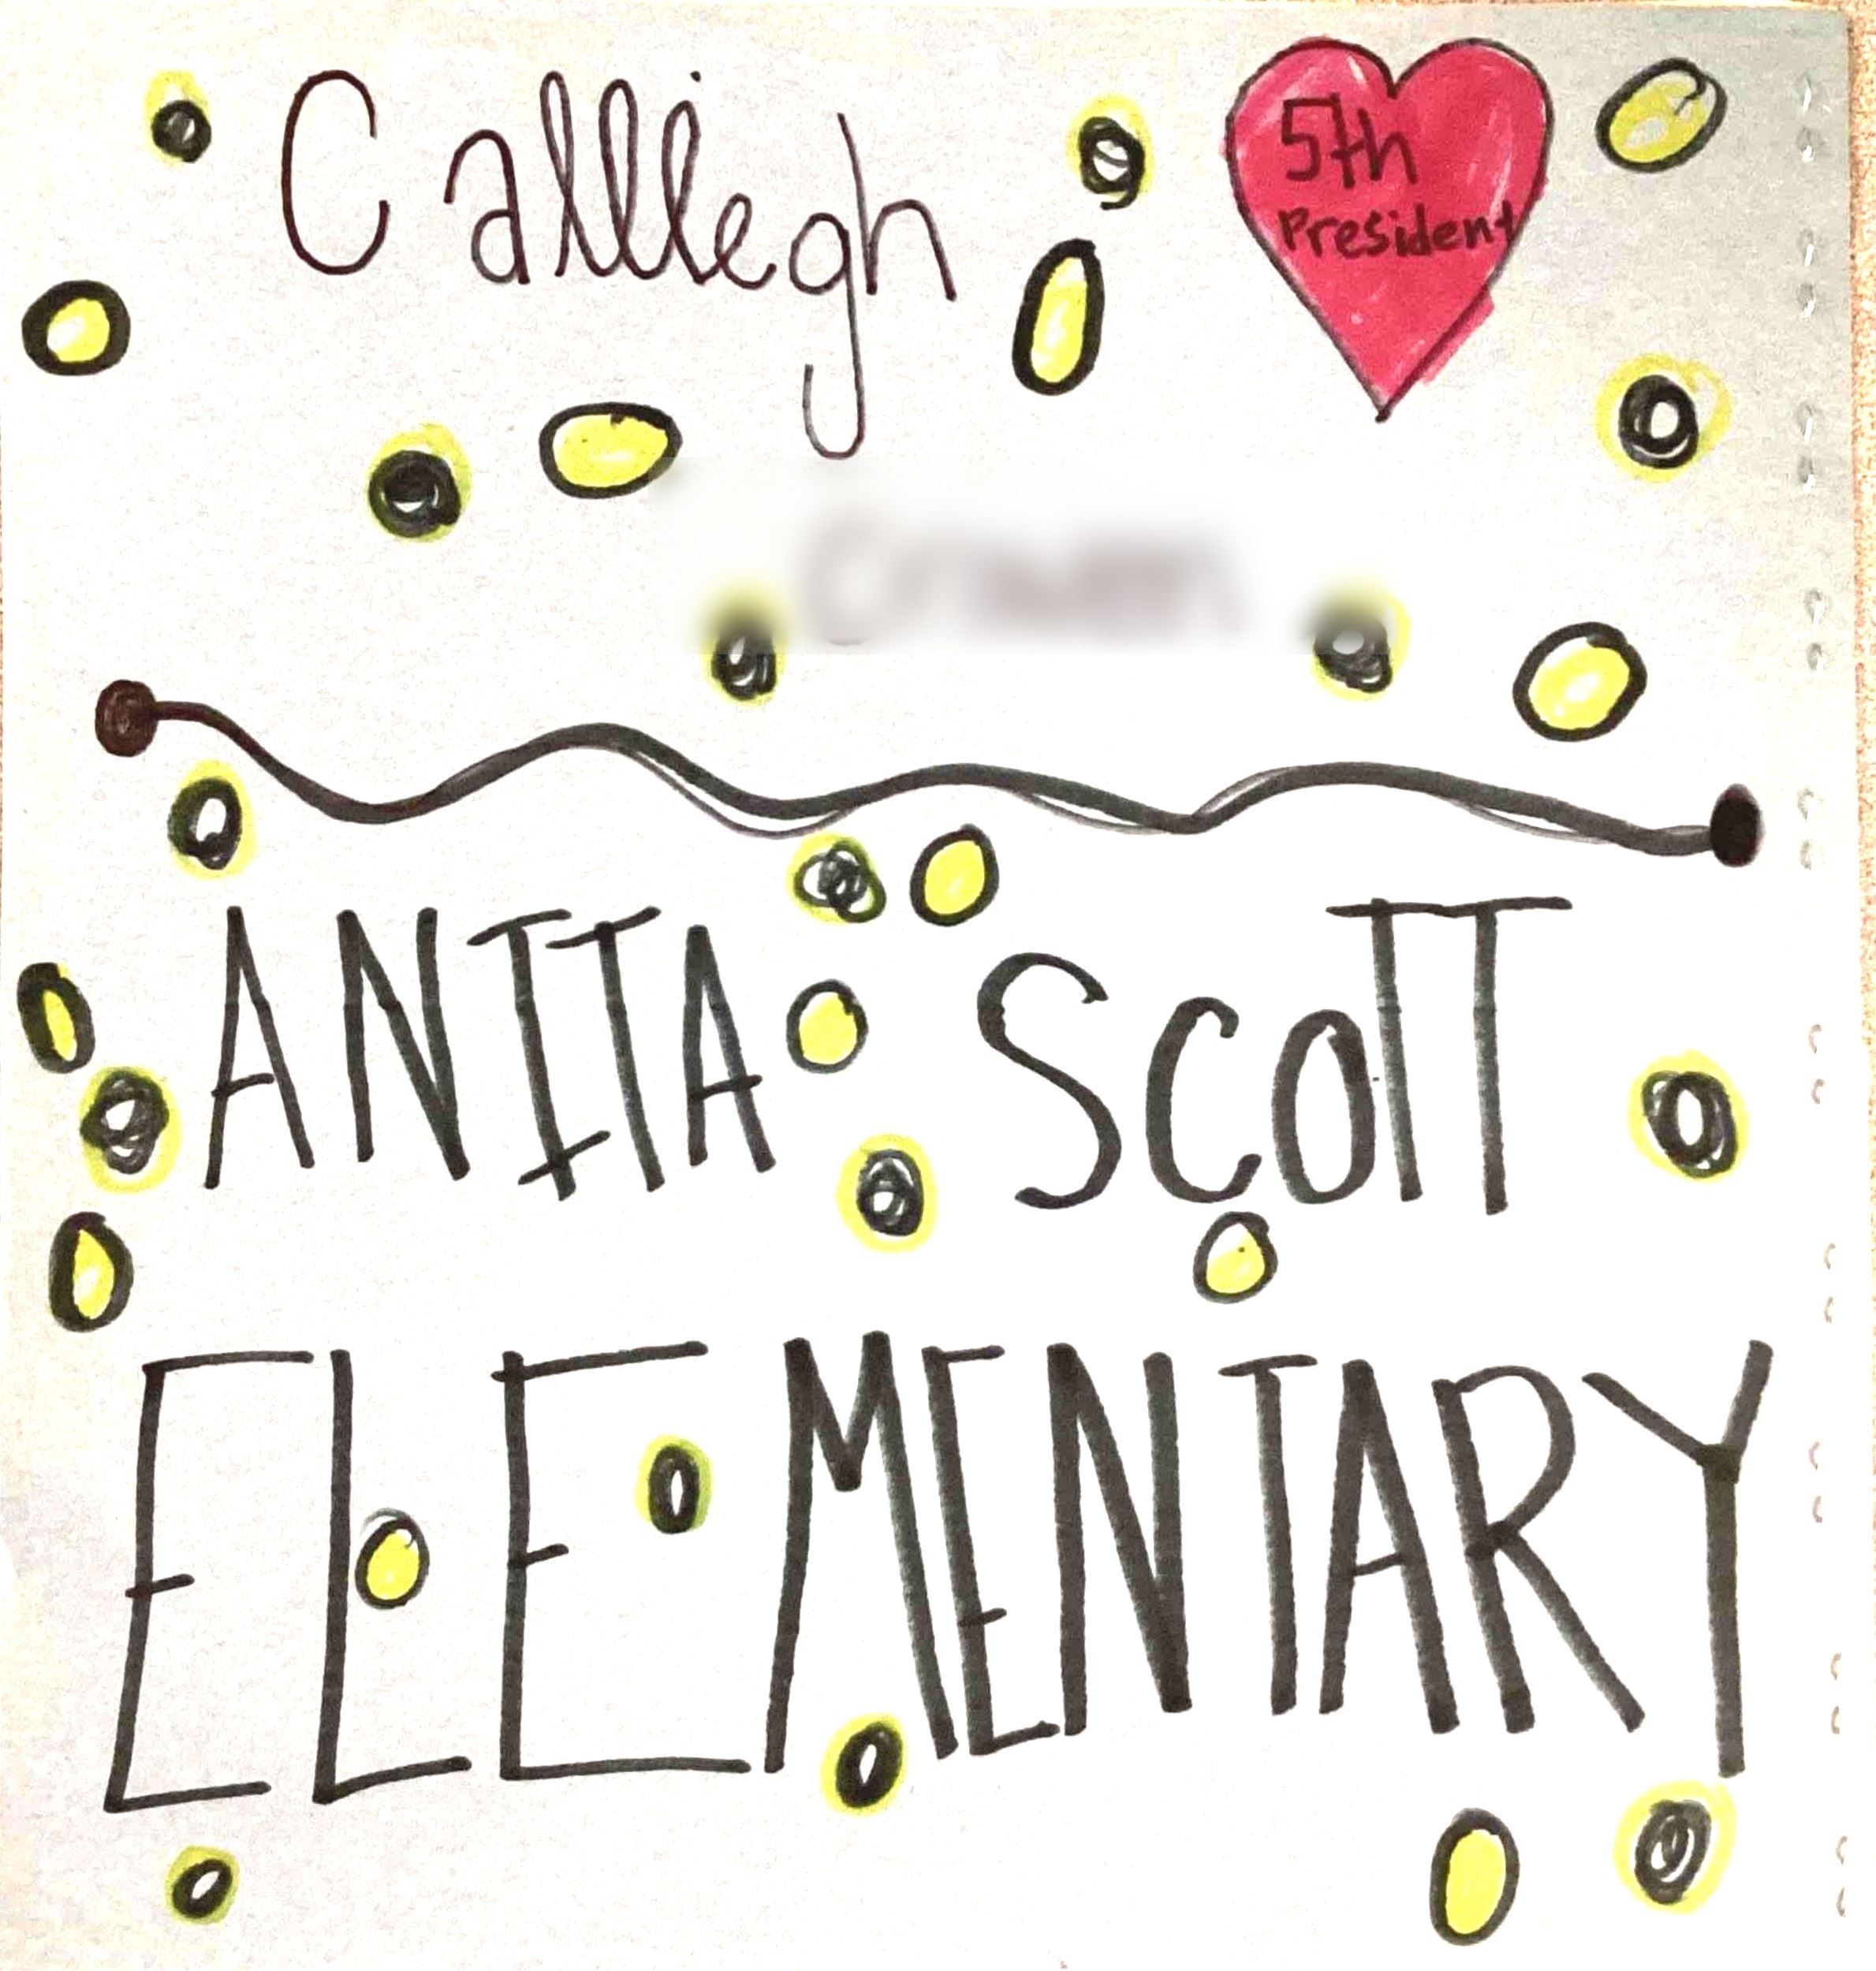 Calllegh
5th
President
ANITA SCOTT
ELEMENTARY